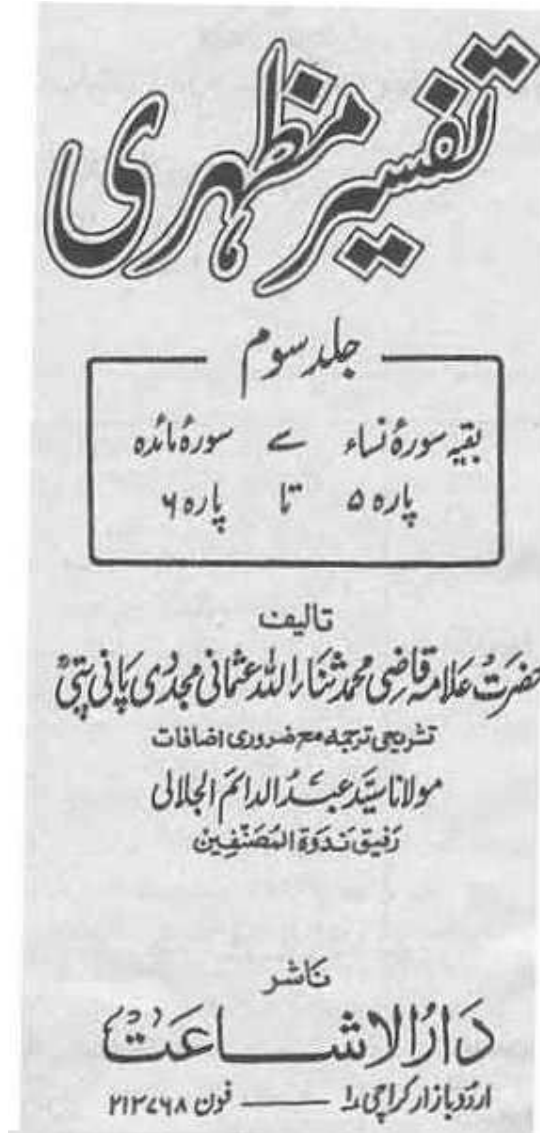 تفسیر مظہری
جلد سوم
بقیہ سورۂ نساء سے سورۂ مائدہ
پارہ ۵ تا پارہ ۶
تالیف
حضرت علامہ قاضی محمد ثناء اللہ عثمانی مجددی پانی پتیؒ
تشریحی ترجمہ مع ضروری اضافات
مولانا سید عبد الدائم الجلالی
رفیق ندوۃ المصنفین
ناشر
دار الاشاعت
اردو بازار کراچی ۱ — فون ۲۱۳۷۶۸